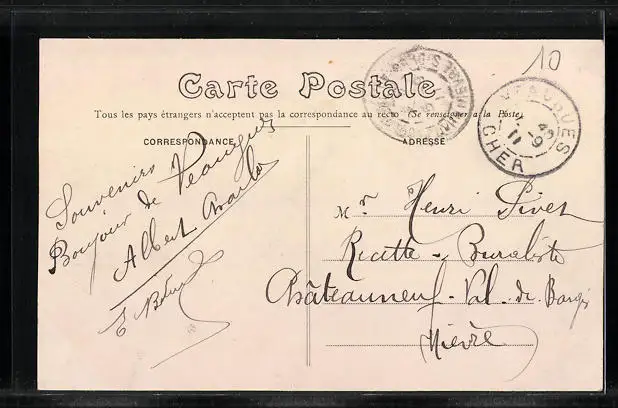 10
Carte Postale
Tous les pays étrangers n'acceptent pas la correspondance au recto (Se renseigner à la Poste)
CORRESPONDANCE
ADRESSE
VEAUGUES
CHER
Souvenirs
Bonjour de Veaugues
Albert Charlot
E
Mr Henri Pivet
Recette-Buraliste
Châteauneuf-Val-de-Bargis
Nièvre